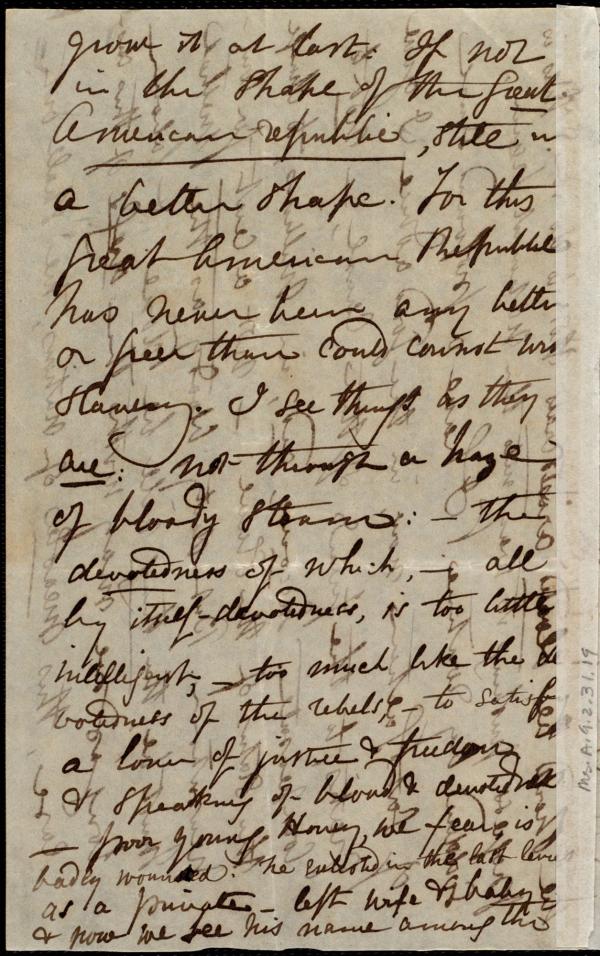 grow it at last: If not
in the shape of the Great
American republic, still in
a better shape. For this
great American Republic
has never been any better
or freer than could consist wi
Slavery. I see things as they
are: not through a haze
of bloody steam: – the
devotedness of which, – all
by itself-devotedness, is too little
intelligent, – too much like the de
votedness of the rebels, – to satisf
a lover of justice & freedom
& speaking of blood & devotedne
– poor young Honey, we fear, is
badly wounded. he enlisted in the last lev
as a private – left wife & baby
& now we see his name among the
Ms.A.9.2.31.19